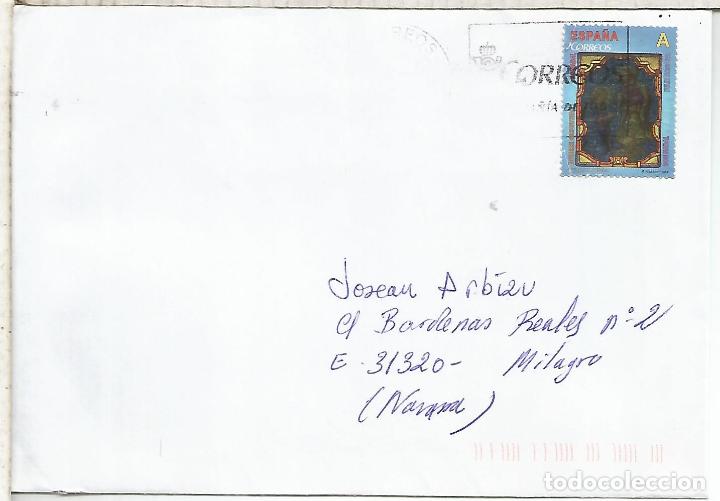 ESPAÑA A
CORREOS
CORREOS
Josean Arbizu
C/ Bardenas Reales nº 2
E-31320- Milagro
(Navarra)
todocoleccion.net